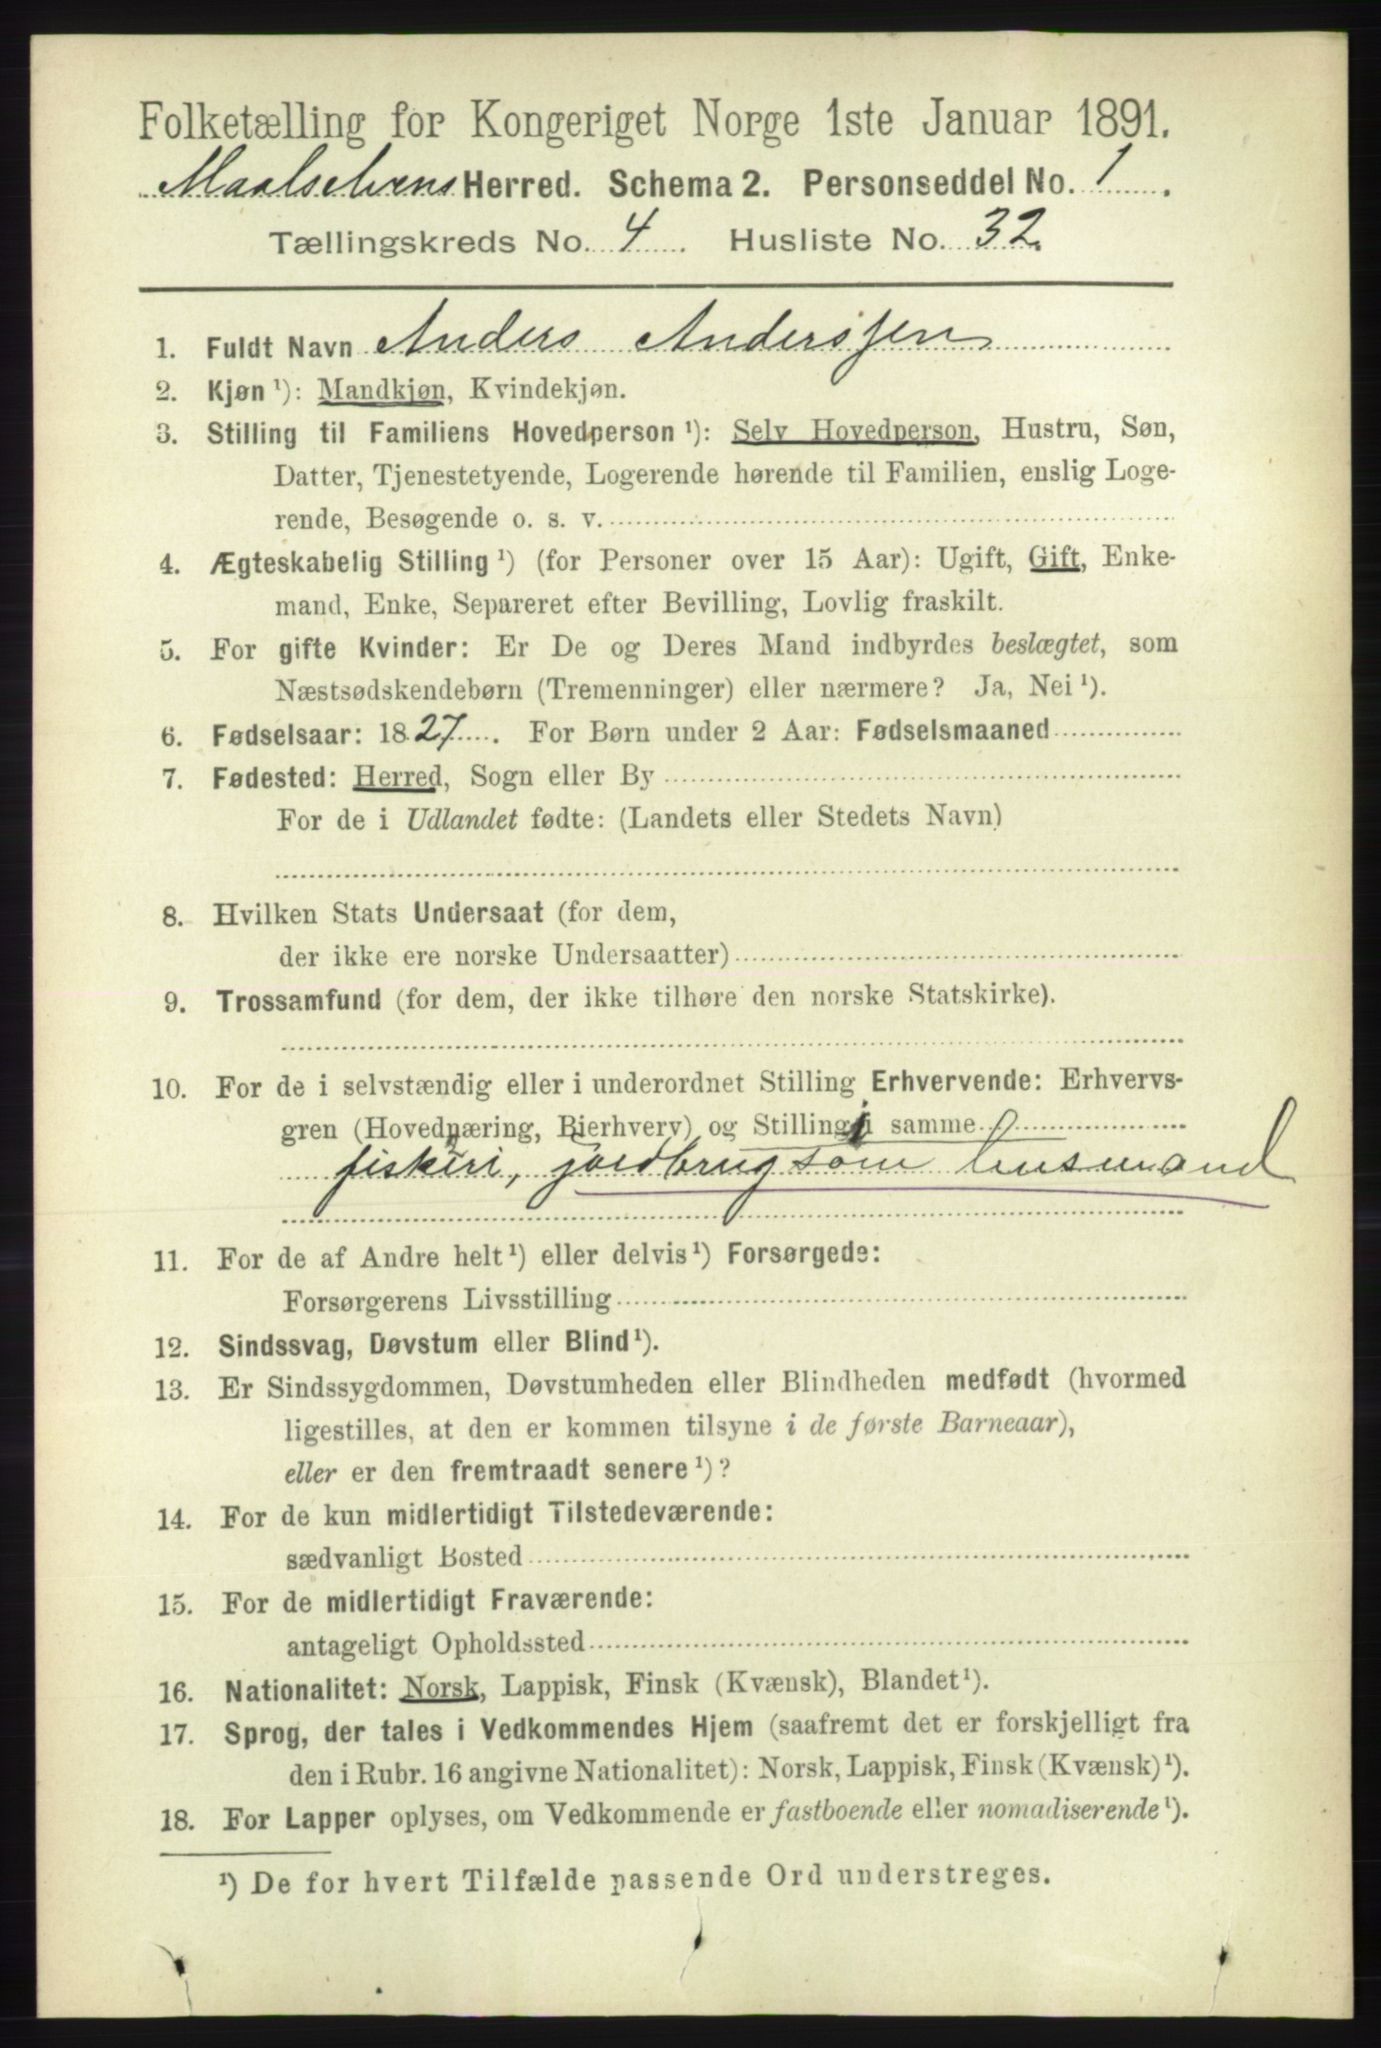 Folketælling for Kongeriget Norge 1ste Januar 1891.
Maalselvens Herred. Schema 2. Personseddel No. 1.
Tællingskreds No. 4. Husliste No. 32.
1. Fuldt Navn Anders Anderssen
2. Kjøn ¹): Mandkjøn, Kvindekjøn.
3. Stilling til Familiens Hovedperson ¹): Selv Hovedperson, Hustru, Søn,
Datter, Tjenestetyende, Logerende hørende til Familien, enslig Loge-
rende, Besøgende o. s. v.
4. Ægteskabelig Stilling ¹) (for Personer over 15 Aar): Ugift, Gift, Enke-
mand, Enke, Separeret efter Bevilling, Lovlig fraskilt.
5. For gifte Kvinder: Er De og Deres Mand indbyrdes beslægtet, som
Næstsødskendebørn (Tremenninger) eller nærmere? Ja, Nei ¹).
6. Fødselsaar: 1827. For Børn under 2 Aar: Fødselsmaaned
7. Fødested: Herred, Sogn eller By
For de i Udlandet fødte: (Landets eller Stedets Navn)
8. Hvilken Stats Undersaat (for dem,
der ikke ere norske Undersaatter)
9. Trossamfund (for dem, der ikke tilhøre den norske Statskirke).
10. For de i selvstændig eller i underordnet Stilling Erhvervende: Erhvervs-
gren (Hovednæring, Bierhverv) og Stilling i samme
fiskeri, jordbrug som husmand
11. For de af Andre helt ¹) eller delvis ¹) Forsørgede:
Forsørgerens Livsstilling
12. Sindssvag, Døvstum eller Blind ¹).
13. Er Sindssygdommen, Døvstumheden eller Blindheden medfødt (hvormed
ligestilles, at den er kommen tilsyne i de første Barneaar),
eller er den fremtraadt senere ¹)?
14. For de kun midlertidigt Tilstedeværende:
sædvanligt Bosted
15. For de midlertidigt Fraværende:
antageligt Opholdssted
16. Nationalitet: Norsk, Lappisk, Finsk (Kvænsk), Blandet ¹).
17. Sprog, der tales i Vedkommendes Hjem (saafremt det er forskjelligt fra
den i Rubr. 16 angivne Nationalitet): Norsk, Lappisk, Finsk (Kvænsk) ¹).
18. For Lapper oplyses, om Vedkommende er fastboende eller nomadiserende ¹).
¹) De for hvert Tilfælde passende Ord understreges.